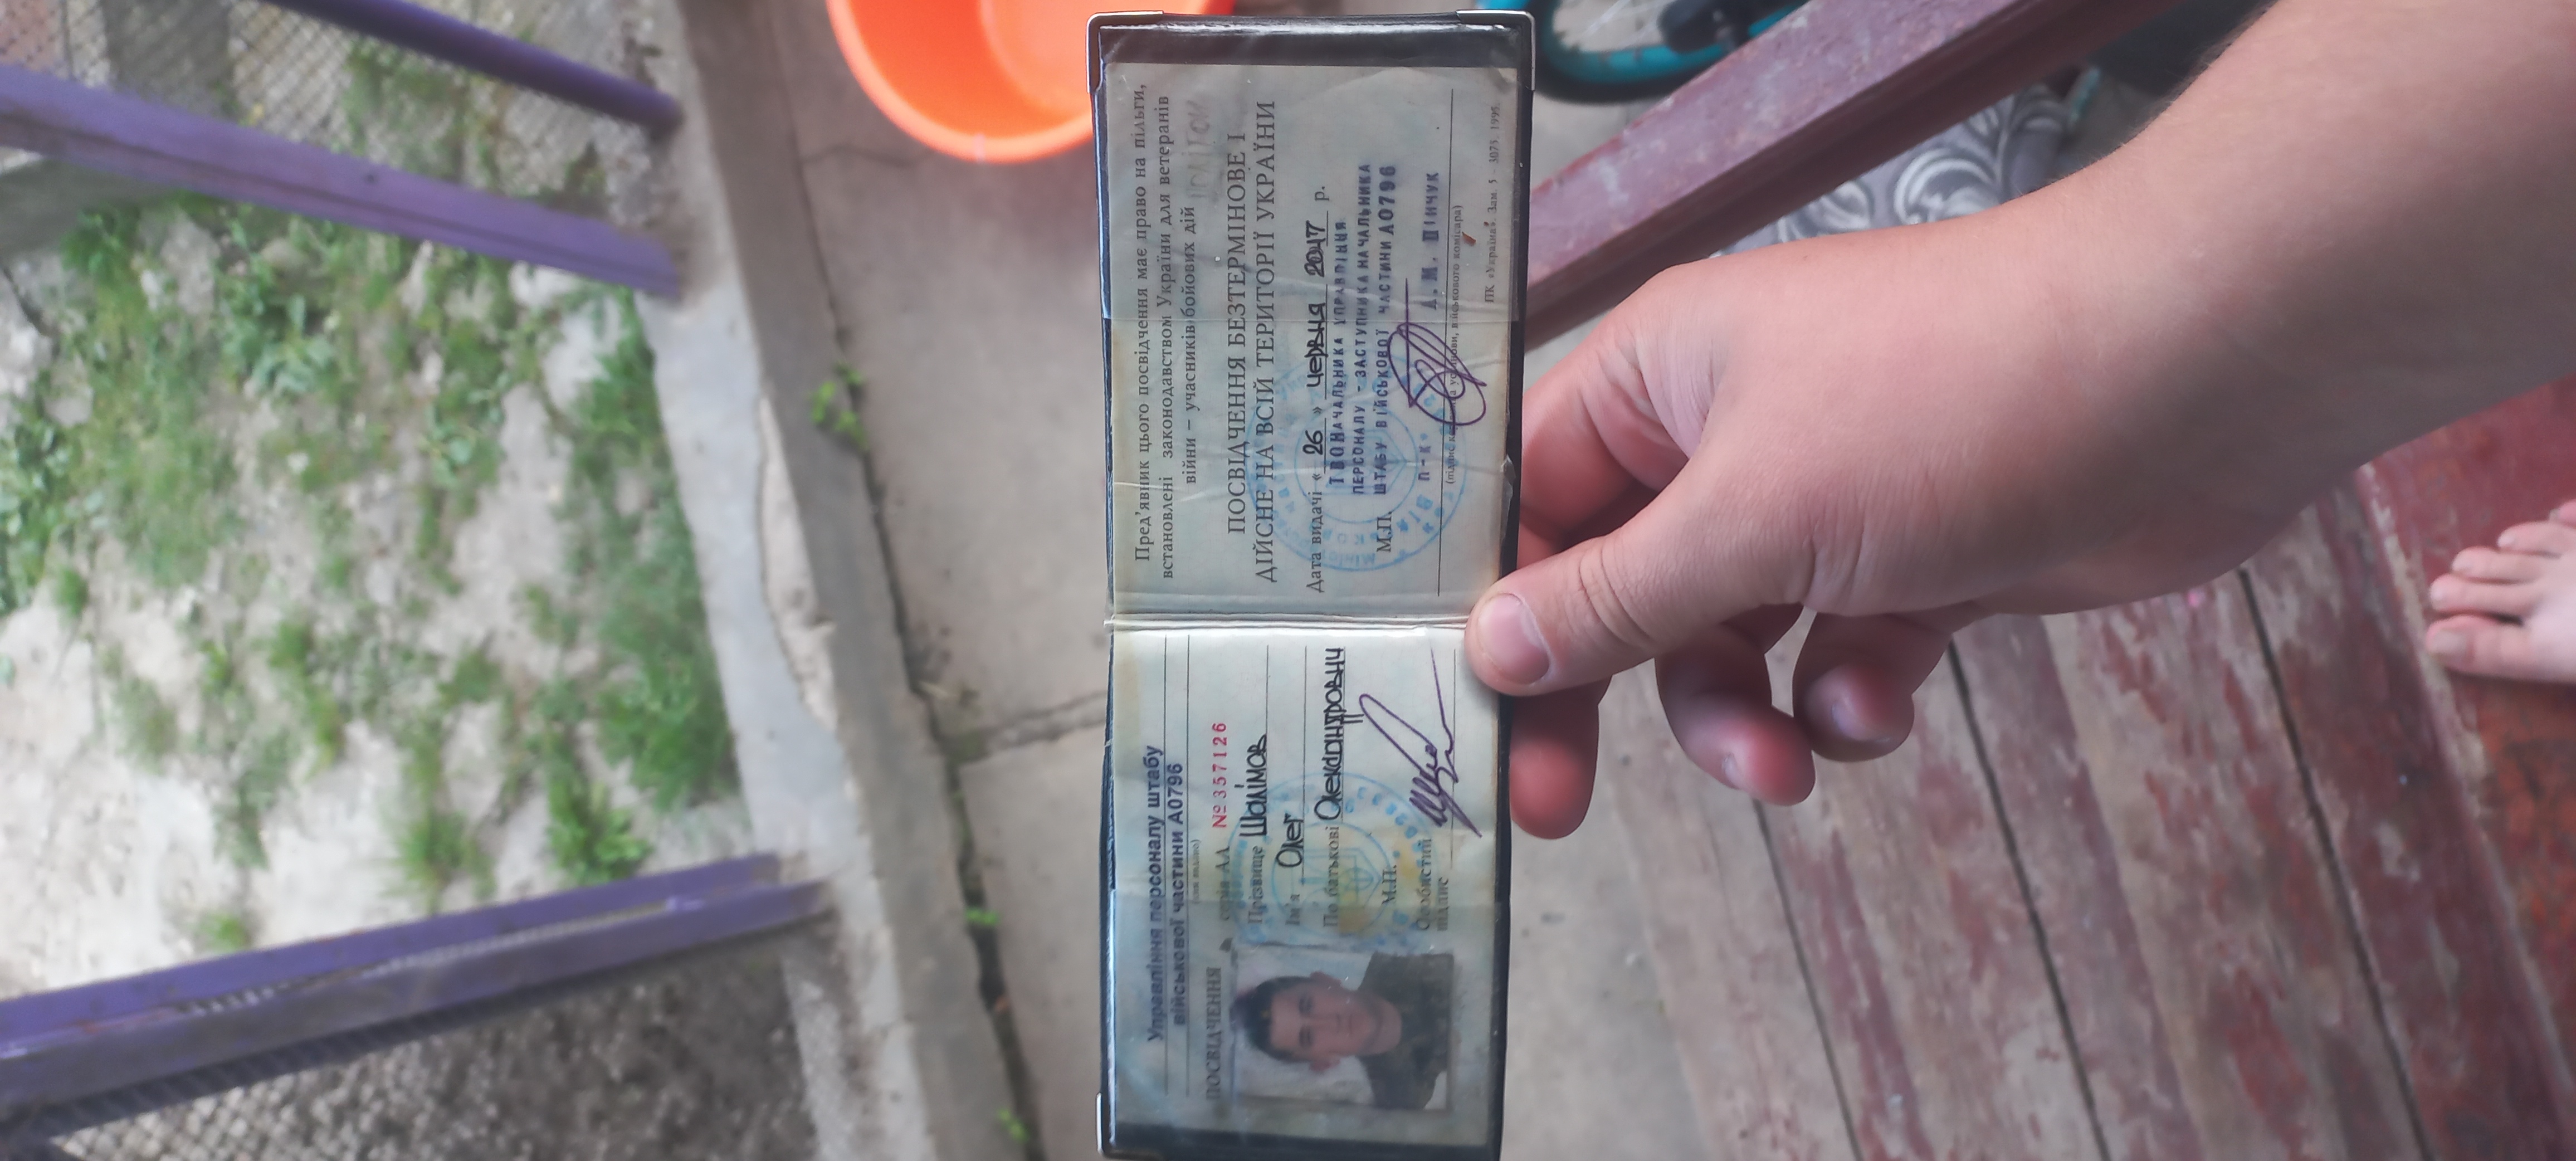 Управління персоналу штабу
військової частини А0796
ПОСВІДЧЕННЯ серія АА № 357126
Прізвище Шалімов
Ім'я Олег
По батькові Олександрович
М.П.
Особистий
підпис
Пред'явник цього посвідчення має право на пільги,
встановлені законодавством України для ветеранів
війни – учасників бойових дій
ПОСВІДЧЕННЯ БЕЗТЕРМІНОВЕ І
ДІЙСНЕ НА ВСІЙ ТЕРИТОРІЇ УКРАЇНИ
Дата видачі « 26 » червня 2017 р.
ТВО НАЧАЛЬНИКА УПРАВЛІННЯ
ПЕРСОНАЛУ - ЗАСТУПНИКА НАЧАЛЬНИКА
ШТАБУ ВІЙСЬКОВОЇ ЧАСТИНИ А0796
М.П.
П-К А.М. ПІНЧУК
ПК «Україна». Зам. 5-3075. 1995.